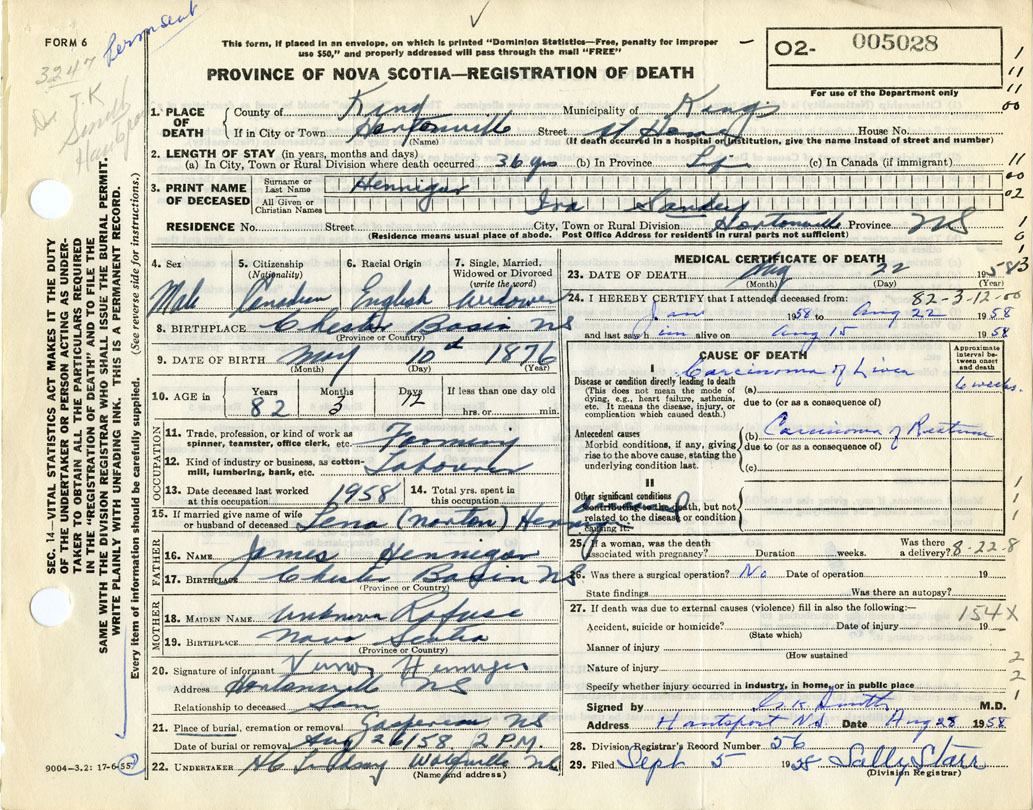 FORM 6
Permanent
3247
Dr. J.K
Smith
This form, if placed in an envelope, on which is printed "Dominion Statistics—Free, penalty for improper
use $50," and properly addressed will pass through the mail "FREE"
O2- 005028
For use of the Department only
PROVINCE OF NOVA SCOTIA—REGISTRATION OF DEATH
1. PLACE OF DEATH
County of Kings Municipality of Kings
If in City or Town Hortonville Street At Home House No.
(Name) (If death occurred in a hospital or institution, give the name instead of street and number)
2. LENGTH OF STAY (in years, months and days)
(a) In City, Town or Rural Division where death occurred 36 yrs (b) In Province Life (c) In Canada (if immigrant)
3. PRINT NAME OF DECEASED
Surname or Last Name Hennigar
All Given or Christian Names Ira Sanders
RESIDENCE No. Street City, Town or Rural Division Hortonville Province NS
(Residence means usual place of abode. Post Office Address for residents in rural parts not sufficient)
4. Sex Male
5. Citizenship (Nationality) Canadian
6. Racial Origin English
7. Single, Married, Widowed or Divorced (write the word) Widower
8. BIRTHPLACE Chester Basin NS
(Province or Country)
9. DATE OF BIRTH May 10th 1876
(Month) (Day) (Year)
10. AGE in Years 82 Months 3 Days 12 If less than one day old hrs. or min.
OCCUPATION
11. Trade, profession, or kind of work as spinner, teamster, office clerk, etc. Farming
12. Kind of industry or business, as cotton-mill, lumbering, bank, etc. Labourer
13. Date deceased last worked at this occupation 1958
14. Total yrs. spent in this occupation
15. If married give name of wife or husband of deceased Lena (Norton) Hennigar
FATHER
16. NAME James Hennigar
17. BIRTHPLACE Chester Basin NS
(Province or Country)
MOTHER
18. MAIDEN NAME Unknown Rafuse
19. BIRTHPLACE Nova Scotia
(Province or Country)
20. Signature of informant Hennigar
Address Hortonville NS
Relationship to deceased Son
21. Place of burial, cremation or removal Gaspereau NS
Date of burial or removal Aug 26/58 2 P.M.
22. UNDERTAKER Wolfville NS
(Name and address)
MEDICAL CERTIFICATE OF DEATH
23. DATE OF DEATH Aug 22 1958
(Month) (Day) (Year)
82-3-12-00
24. I HEREBY CERTIFY that I attended deceased from:
Jan 1958 to Aug 22 1958
and last saw him alive on Aug 15 1958
CAUSE OF DEATH
Approximate interval between onset and death
I
Disease or condition directly leading to death
(This does not mean the mode of dying, e.g., heart failure, asthenia, etc. It means the disease, injury, or complication which caused death.)
(a) Carcinoma of Liver 6 weeks.
due to (or as a consequence of)
Antecedent causes
Morbid conditions, if any, giving rise to the above cause, stating the underlying condition last.
(b) Carcinoma of Rectum
due to (or as a consequence of)
(c)
II
Other significant conditions contributing to the death, but not related to the disease or condition causing it.
25. If a woman, was the death associated with pregnancy? Duration weeks. Was there a delivery?
8-22-8
26. Was there a surgical operation? No Date of operation 19
State findings Was there an autopsy?
27. If death was due to external causes (violence) fill in also the following:—
154X
Accident, suicide or homicide? Date of injury 19
(State which)
Manner of injury
(How sustained
Nature of injury
Specify whether injury occurred in industry, in home, or in public place
Signed by Smith M.D.
Address Hantsport N.S. Date Aug 28 1958
28. Division Registrar's Record Number 56
29. Filed Sept 5 1958 Sally Starr
(Division Registrar)
SEC. 14—VITAL STATISTICS ACT MAKES IT THE DUTY
OF THE UNDERTAKER OR PERSON ACTING AS UNDER-
TAKER TO OBTAIN ALL THE PARTICULARS REQUIRED
IN THE "REGISTRATION OF DEATH" AND TO FILE THE
SAME WITH THE DIVISION REGISTRAR WHO SHALL ISSUE THE BURIAL PERMIT.
WRITE PLAINLY WITH UNFADING INK. THIS IS A PERMANENT RECORD.
Every item of information should be carefully supplied. (See reverse side for instructions.)
9004-3.2: 17-6-55